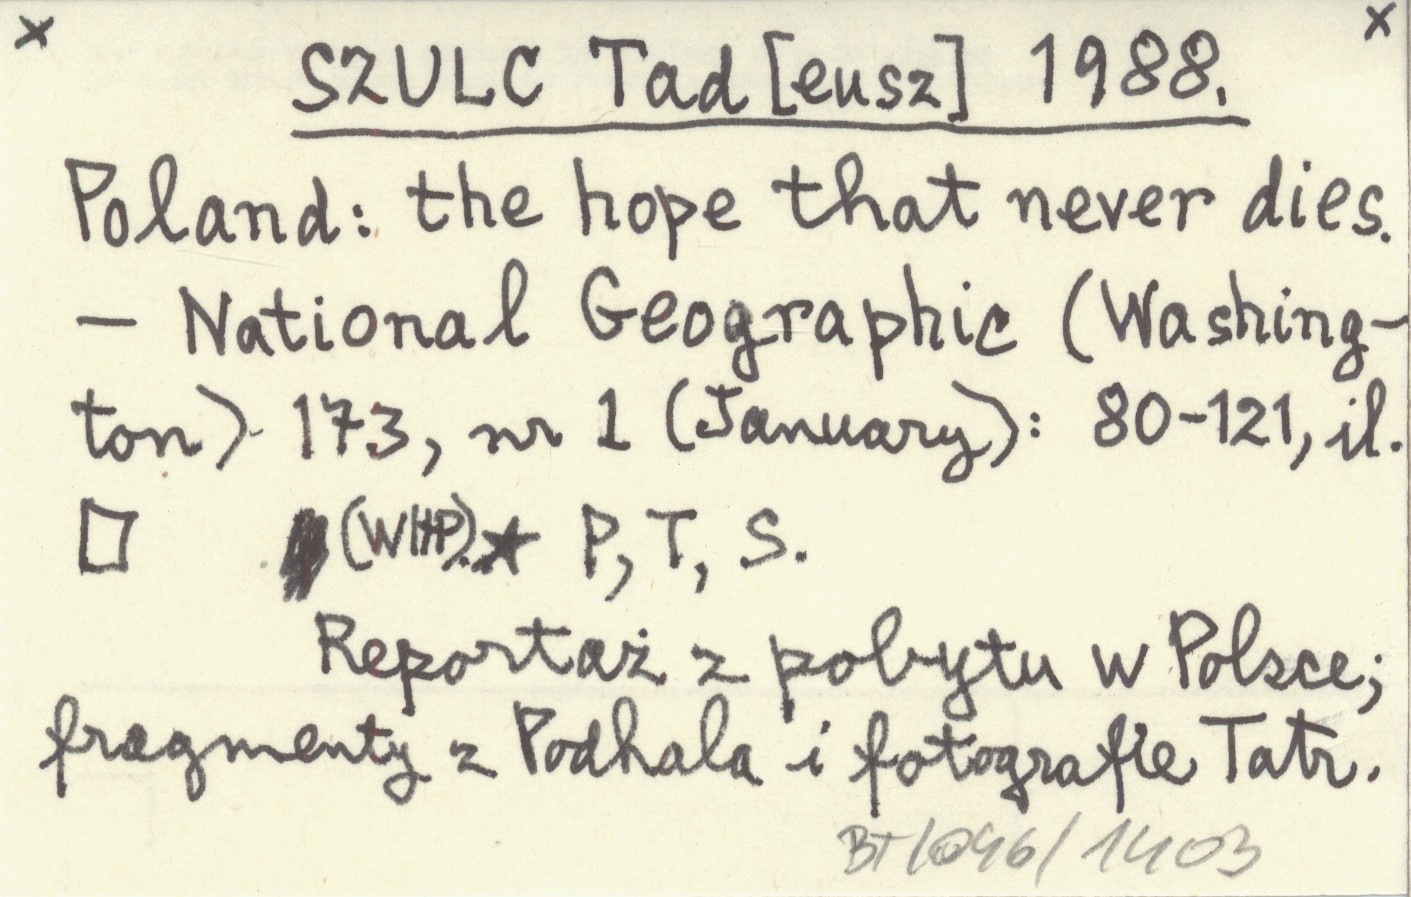 x x
SZULC Tad[eusz] 1988.
Poland: the hope that never dies.
— National Geographic (Washing-
ton) 173, nr 1 (January): 80-121, il.
□ (WHP).★ P, T, S.
Reportaż z pobytu w Polsce;
fragmenty z Podhala i fotografie Tatr.
BT/046/1403